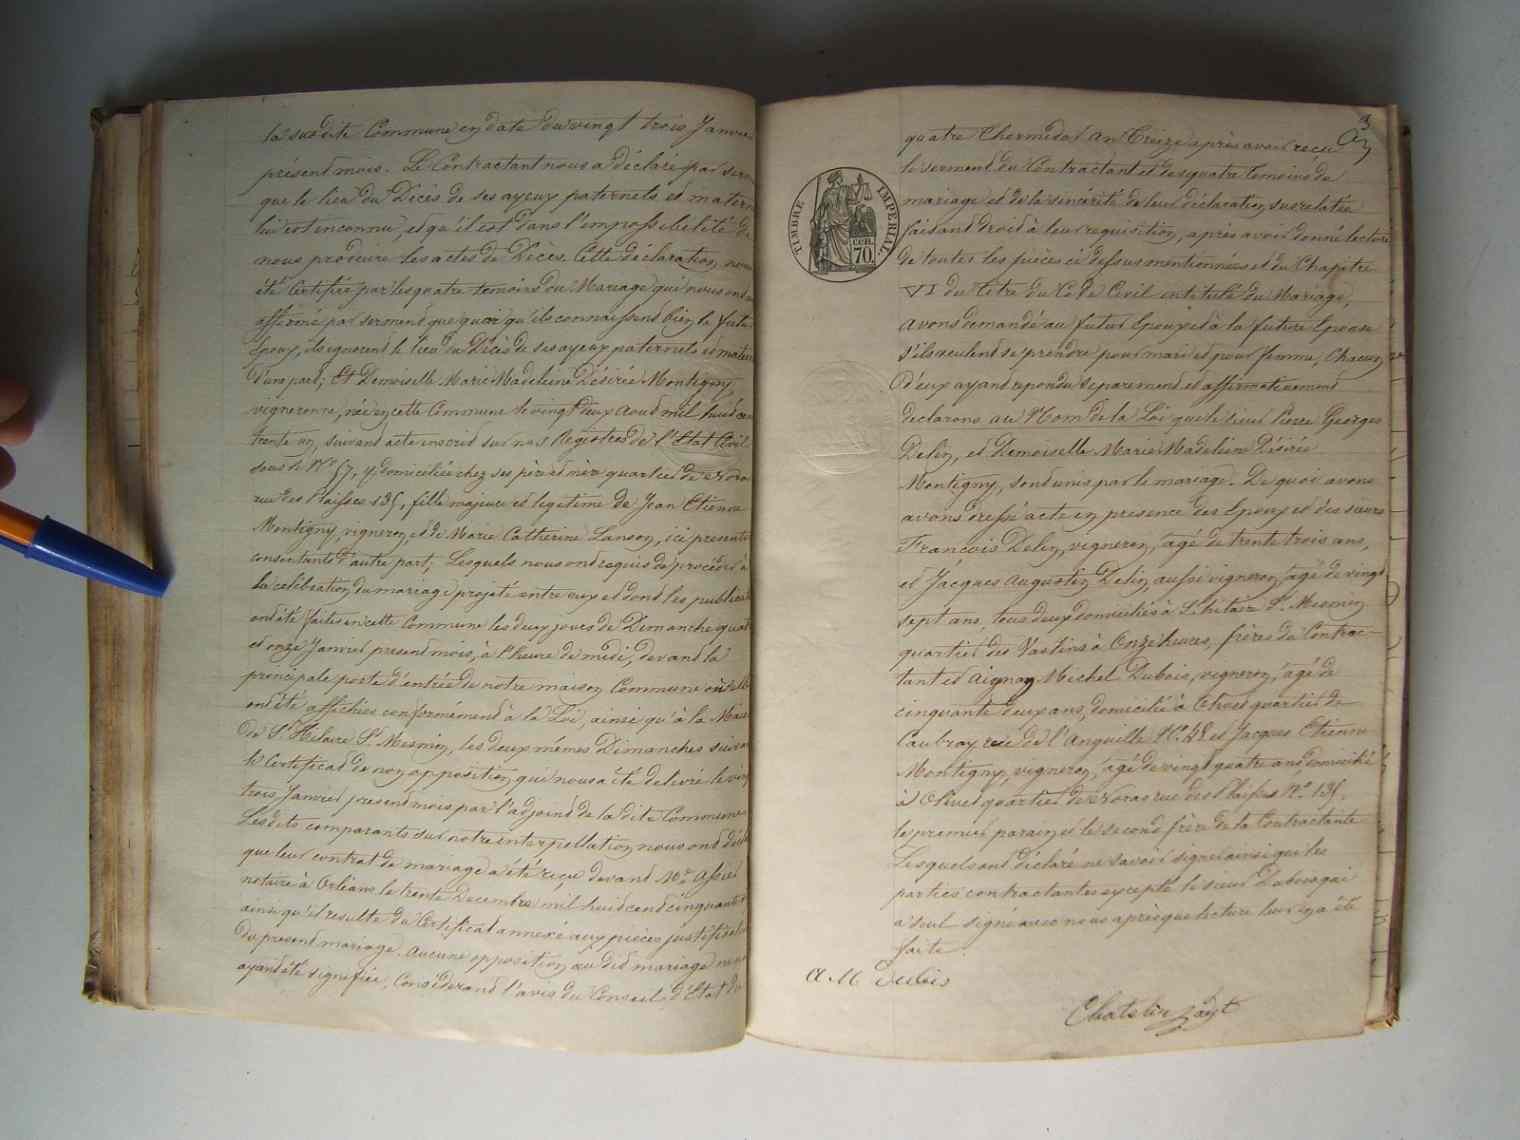 la susdite Commune en date du vingt trois Janvier
présent mois. Le Contractant nous a déclaré par serm
que le lieu du Décès de ses ayeux paternels et matern
lui est inconnu, et qu'il est dans l'impossibilité de
nous produire les actes de Décès. Cette déclaration nous
été Certifiée par les quatre temoins du Mariage qui nous ont
affirmé par serment que quoi qu'ils connaissent bien le futur
Epoux, ils ignorent le lieu du Décès de ses ayeux paternels et mater
D'une part; Et Demoiselle Marie Madeleine Désirée Montigny
vigneronne, née en cette Commune le vingt deux Aout mil huit cen
trente un, suivant acte inscrit sur nos Registres de l'Etat Civil
sous le N° 57, y domiciliée chez ses père et mère quartier de
rue des 135, fille majeure et legitime de Jean Etienne
Montigny, vigneron, et de Marie Catherine Lanson, ici presents
consentants d'autre part; Lesquels nous ont requis de procéder à
la celébration du mariage projeté entre eux et dont les publicat
ont été faites en cette Commune les deux jours de Dimanche quat
et onze Janvier present mois, à l'heure de midi, devant la
principale porte d'entrée de notre maison Commune où elle
ont été affichées conformément à la Loi, ainsi qu'à la Mair
de St Hilaire St Mesmin, les deux mêmes Dimanches suivan
le Certificat de non opposition qui nous a été delivré le vin
trois Janvier present mois par l'adjoint de la dite Commune
Lesdits comparants sur notre interpellation nous ont décla
que leur contrat de mariage a été reçu devant Me
notaire à Orléans le trente Decembre mil huit cent cinquante
ainsi qu'il resulte du Certificat annexé aux pièces justificat
du present mariage. Aucune opposition au dit mariage ne
ayant été signifiée, Considerant l'avis du Conseil d'Etat du
3
quatre Thermidor An Treize après avoir reçu
le serment du Contractant et des quatre temoins du
mariage et de la sincérité de leur déclaration susrelatée
faisant droit à leur requisition, après avoir donné lecture
de toutes les pièces ci dessus mentionnées et du Chapitre
VI du titre du Code Civil intitulé du Mariage,
Avons demandé au futur Epoux et à la future Epouse
s'ils veulent se prendre pour mari et pour femme, Chacun
d'eux ayant repondu separement et affirmativement
declarons au Nom de la Loi que le sieur Pierre Georges
Delin, et Demoiselle Marie Madeleine Désirée
Montigny, sont unis par le mariage. De quoi avons
avons dressé acte en presence des Epoux et des sieurs
François Delin, vigneron, agé de trente trois ans,
et Jacques Augustin Delin, aussi vigneron, agé de vingt
sept ans, tous deux domiciliés à St hilaire St Mesmin
quartier des Vastins à Onze heures, frères du Contrac-
tant et Aignan Michel Dubois, vigneron, agé de
cinquante deux ans, domicilié à quartier de
Caubray rue de l'Anguille N° 48 et Jacques Etienne
Montigny, vigneron, agé de vingt quatre ans, domicilié
à Olivet quartier de rue des N° 135.
le premier parain et le second frère de la Contractante
Lesquels ont déclaré ne savoir signer ainsi que les
parties contractantes excepté le sieur Dubois qui
a seul signé avec nous après que lecture leur en a été
faite.
A M Dubois
TIMBRE IMPERIAL
CEN.
70.